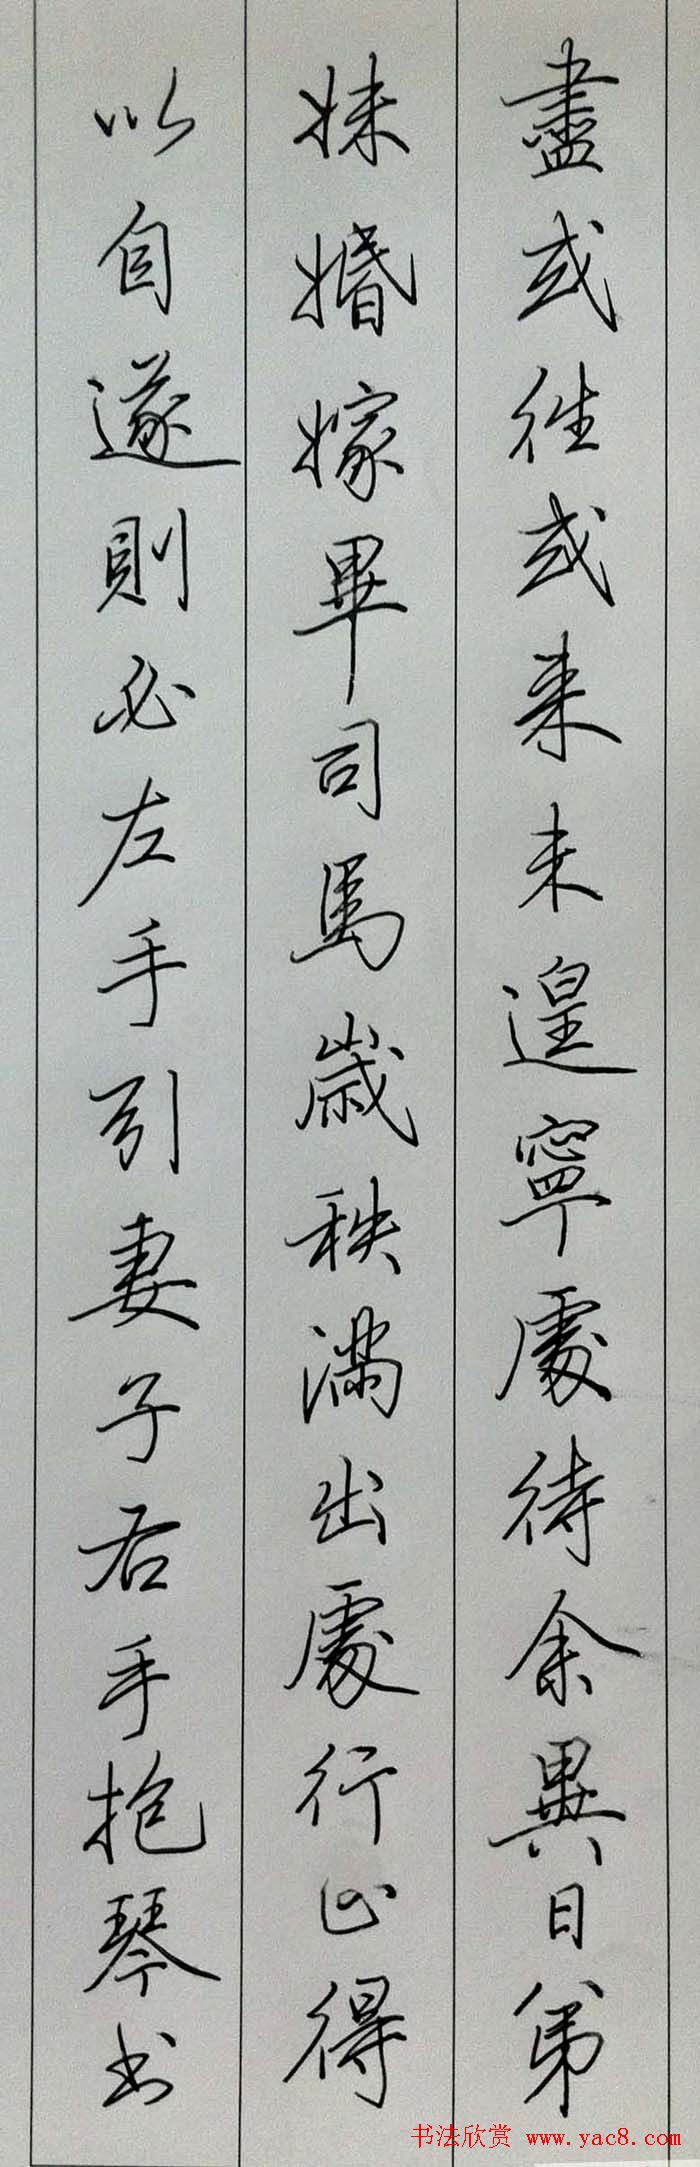 盡或往或来未遑寧處待余異日弟
妹婚嫁畢司馬歲秩滿出處行止得
以自遂則必左手引妻子右手抱琴书
书法欣赏 www.yac8.com